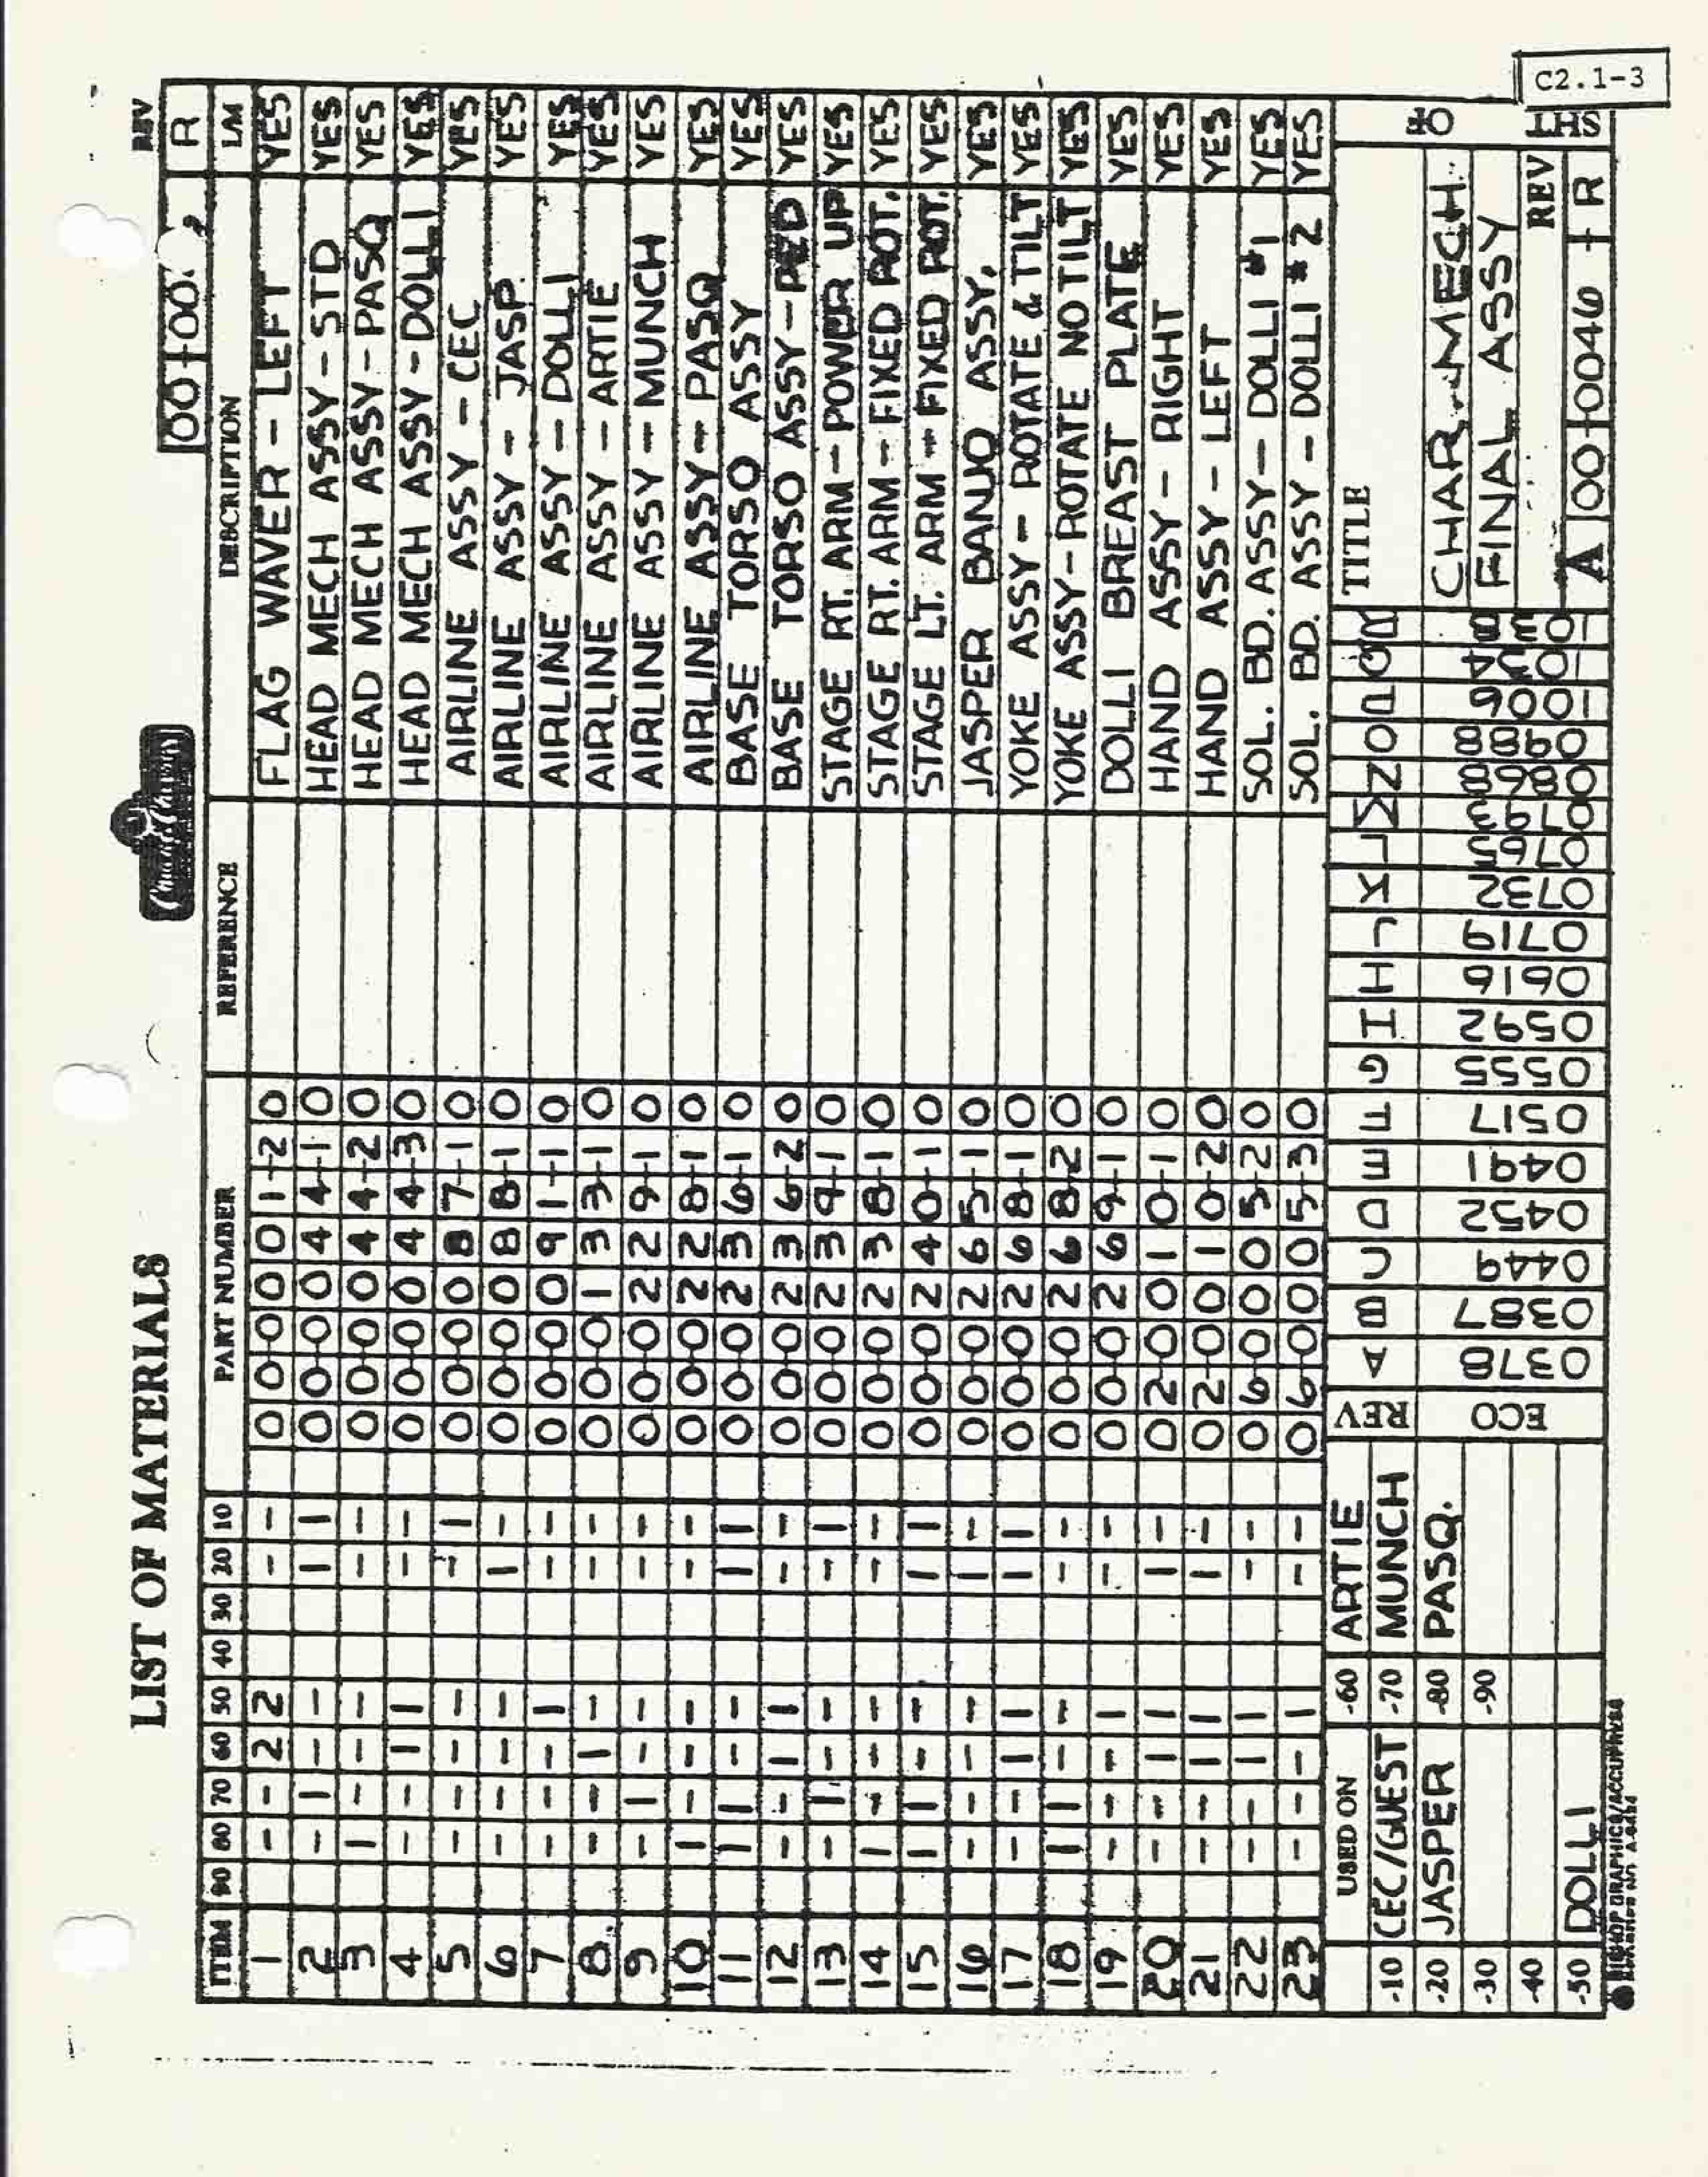 LIST OF MATERIALS
REV
00-00 R
ITEM 90 80 70 60 50 40 30 20 10 PART NUMBER REFERENCE DESCRIPTION L/M
1 - - 2 2 - - 00-0001-20 FLAG WAVER - LEFT YES
2 - 1 - - 1 1 00-0044-10 HEAD MECH ASSY - STD YES
3 1 - - - - - 00-0044-20 HEAD MECH ASSY - PASQ YES
4 - - 1 1 - - 00-0044-30 HEAD MECH ASSY - DOLLI YES
5 - - - - - 1 00-0087-10 AIRLINE ASSY - CEC YES
6 - - - - 1 - 00-0088-10 AIRLINE ASSY - JASP. YES
7 - - - 1 - - 00-0091-10 AIRLINE ASSY - DOLLI YES
8 - - 1 - - - 00-0133-10 AIRLINE ASSY - ARTIE YES
9 - 1 - - - - 00-0229-10 AIRLINE ASSY - MUNCH YES
10 1 - - - - - 00-0228-10 AIRLINE ASSY - PASQ YES
11 1 1 - - 1 1 00-0236-10 BASE TORSO ASSY YES
12 - - 1 1 - - 00-0236-20 BASE TORSO ASSY - PED YES
13 - 1 - - - 1 00-0239-10 STAGE RT. ARM - POWER UP YES
14 1 - - - - - 00-0238-10 STAGE RT. ARM - FIXED ROT. YES
15 1 1 - - 1 1 00-0240-10 STAGE LT. ARM - FIXED ROT. YES
16 - - - - 1 - 00-0265-10 JASPER BANJO ASSY. YES
17 - - 1 1 1 1 00-0268-10 YOKE ASSY - ROTATE & TILT YES
18 1 1 - - - - 00-0268-20 YOKE ASSY - ROTATE NO TILT YES
19 - - - 1 - - 00-0269-10 DOLLI BREAST PLATE YES
20 - - 1 1 1 1 02-0010-10 HAND ASSY - RIGHT YES
21 - - 1 1 1 1 02-0010-20 HAND ASSY - LEFT YES
22 - - 1 1 - - 06-0005-20 SOL. BD. ASSY - DOLLI #1 YES
23 - - - 1 - - 06-0005-30 SOL. BD. ASSY - DOLLI #2 YES
USED ON
-10 CEC/GUEST
-20 JASPER
-30
-40
-50 DOLLI
-60 ARTIE
-70 MUNCH
-80 PASQ.
-90
REV ECO
A 0378
B 0387
C 0449
D 0452
E 0491
F 0517
G 0555
H 0616
I 0592
J 0719
K 0732
L 0765
M 0793
N 0868
O 0988
P 1006
Q 1034
R
TITLE
CHAR. MECH.
FINAL ASSY
REV
A 00-0046 - R
SHT
OF
C2.1-3